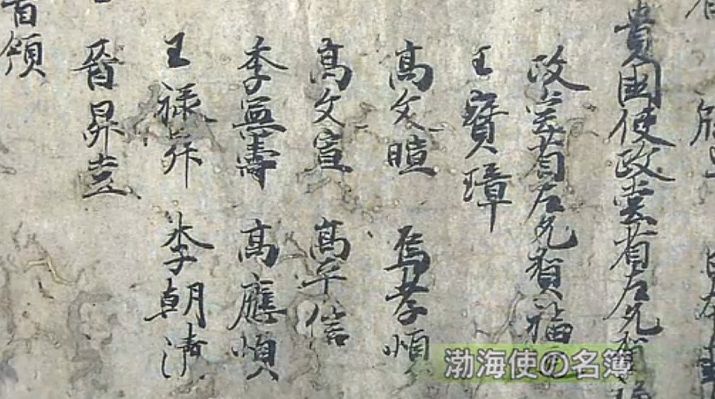 貴國使政堂省左允賀福
政堂省左允賀福
王寶璋
高文暄 烏孝慎
高文宣 高平信
季憲壽 高應順
王禄昇 李朝清
晋昇堂
首領
渤海使の名簿